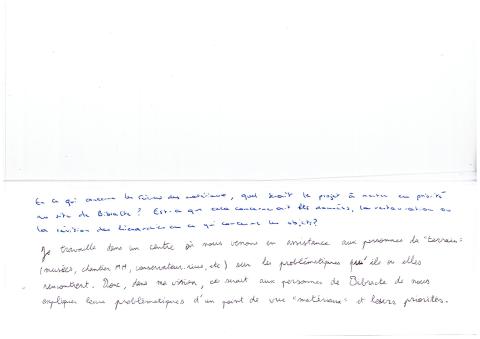 En ce qui concerne les sciences des matériaux, quel serait le projet à mettre en priorité
au site de Bibracte ? Est-ce que cela concernerait les données, la restauration ou
la révision des hiérarchies en ce qui concerne les objets ?
Je travaille dans un centre où nous venons en assistance aux personnes de "terrain"
(musées, chantier MH, conservateur, etc) sur les problématiques qu'ils ou elles
rencontrent. Donc, dans ma vision, ce serait aux personnes de Bibracte de nous
expliquer leurs problématiques d'un point de vue "matériaux" et leurs priorités.